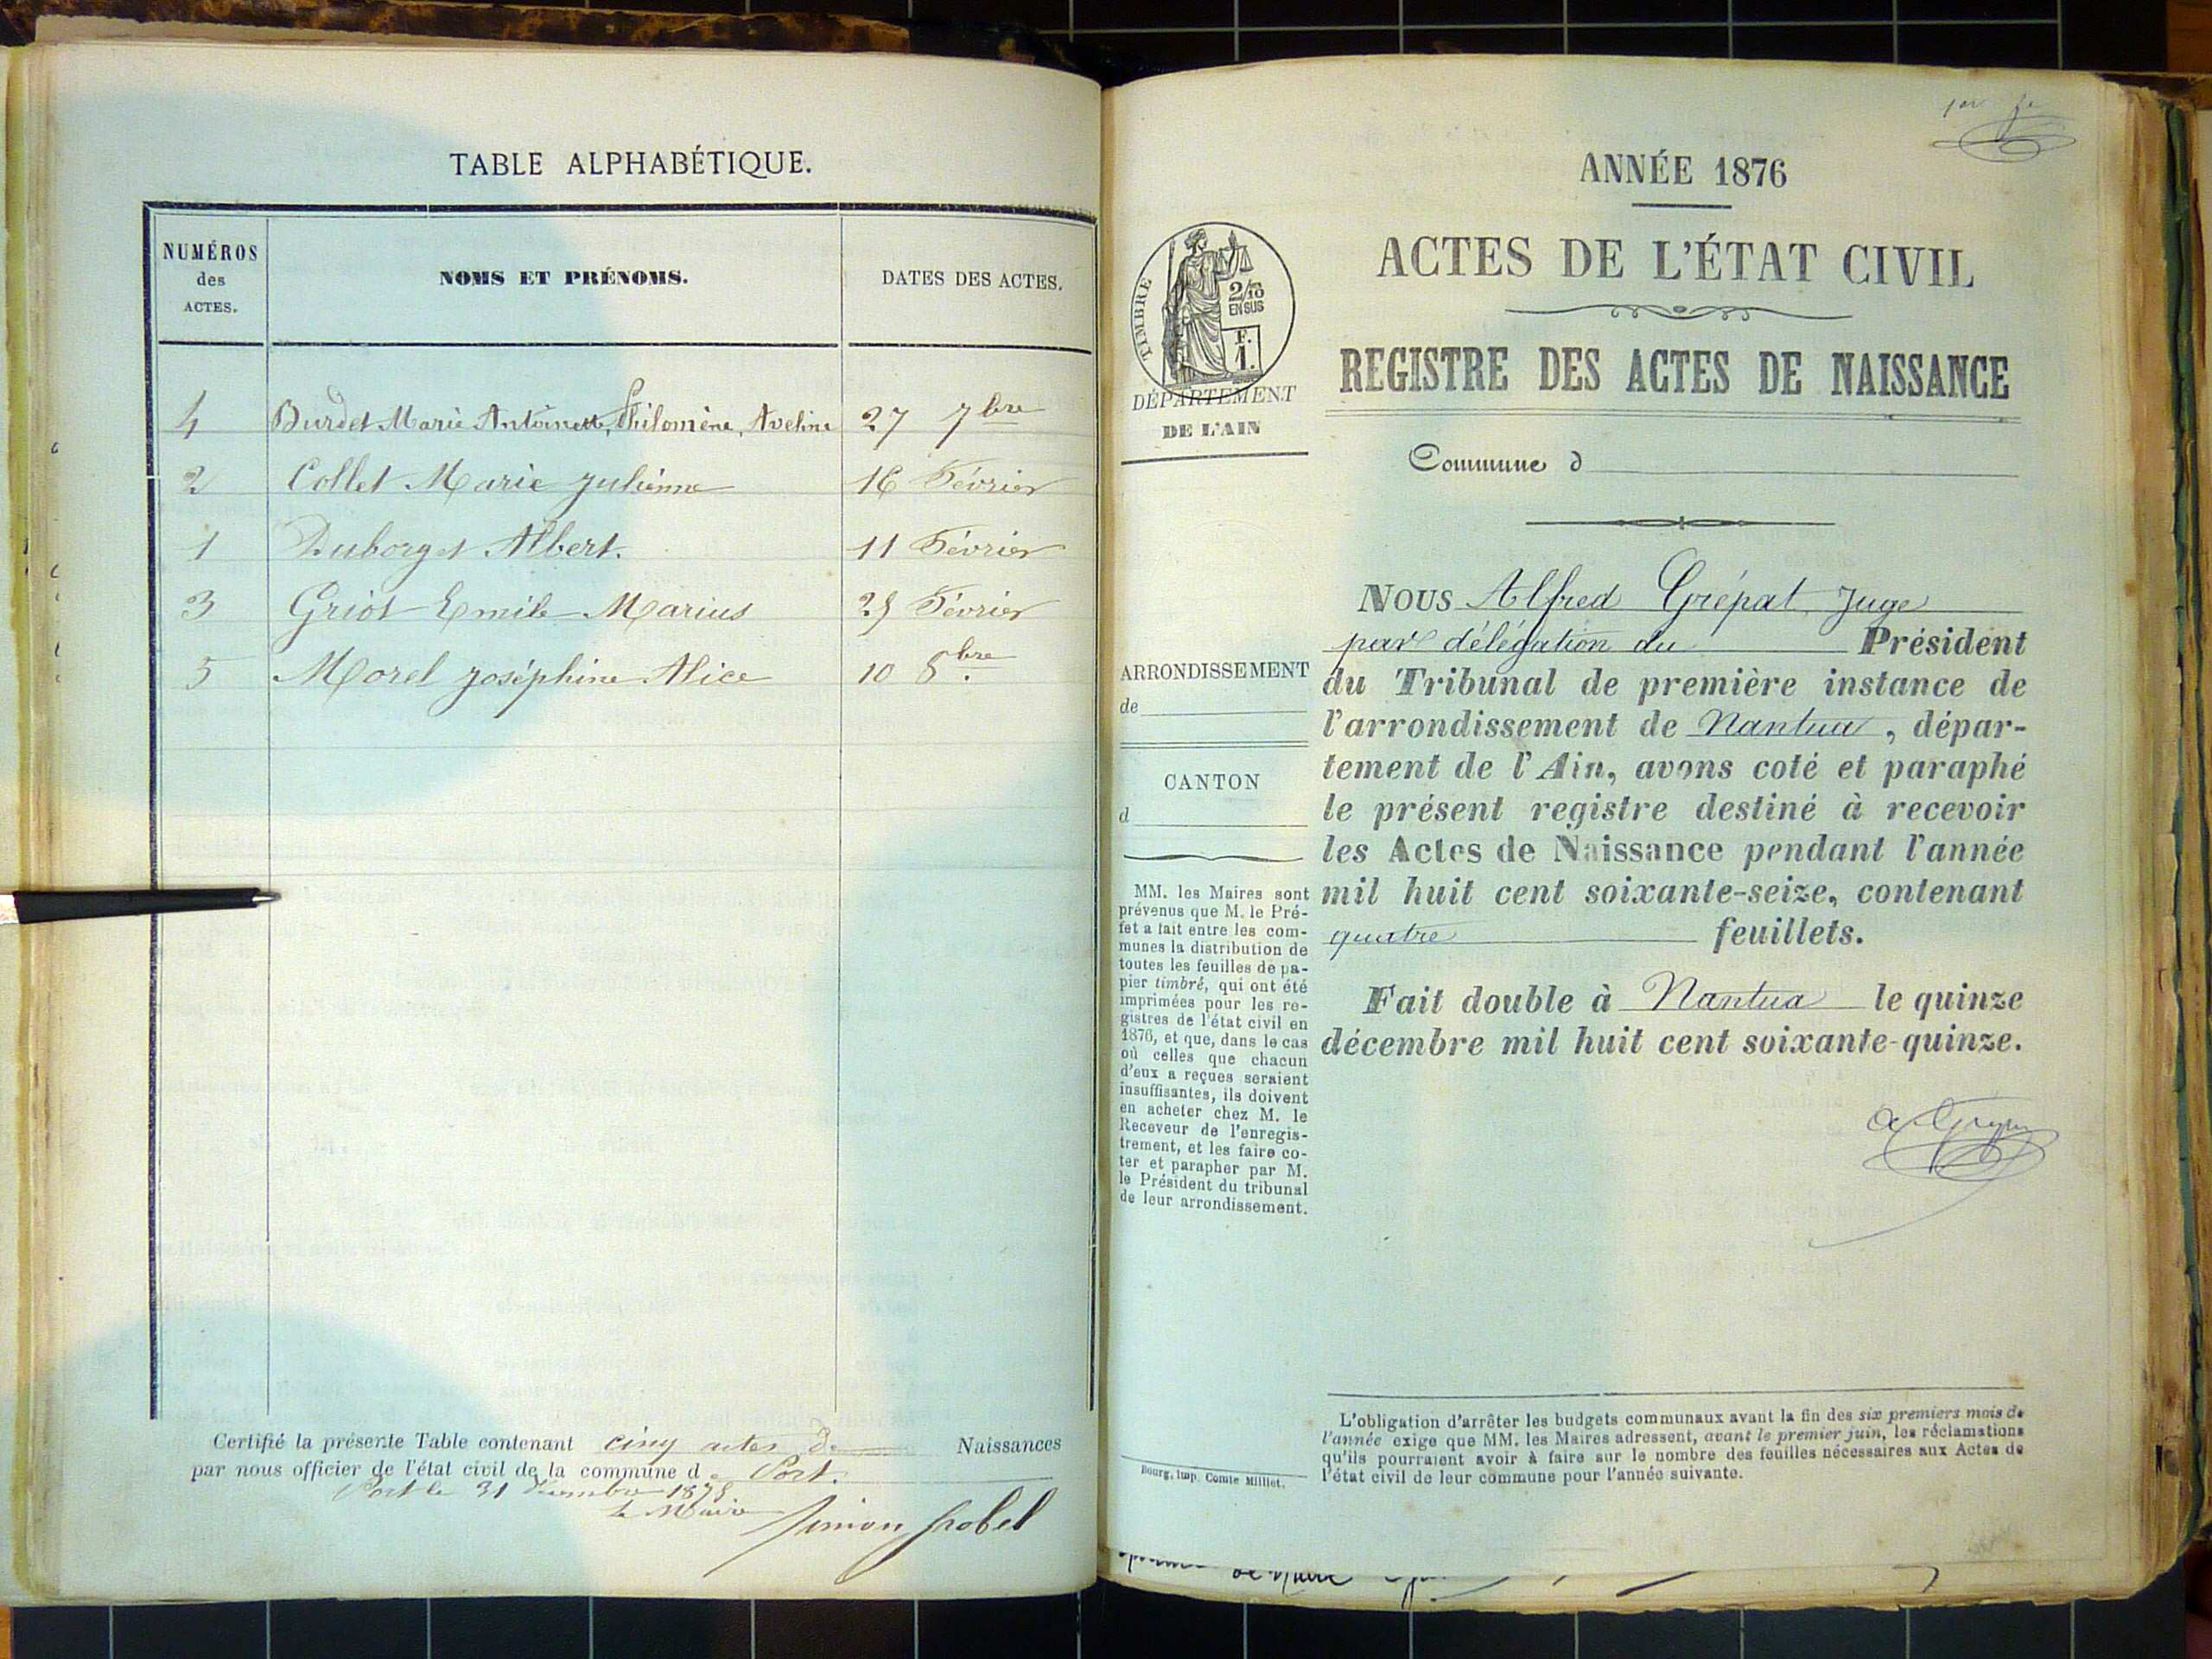 TABLE ALPHABÉTIQUE.
NUMÉROS des ACTES.
NOMS ET PRÉNOMS.
DATES DES ACTES.
4 Burdet Marie Antoinette, Philomène, Aveline 27 7bre
2 Collet Marie Julienne 16 Février
1 Duborget Albert. 11 Février
3 Griot Emile Marius 25 Février
5 Morel Joséphine Alice 10 8bre.
Certifié la présente Table contenant cinq actes de Naissances
par nous officier de l'état civil de la commune d. Port.
Port le 31 Décembre 1875
Le Maire
ANNÉE 1876
ACTES DE L'ÉTAT CIVIL
REGISTRE DES ACTES DE NAISSANCE
Commune d
TIMBRE
2/10
EN SUS
F.
1.
DÉPARTEMENT
DE L'AIN
ARRONDISSEMENT
de
CANTON
d
MM. les Maires sont
prévenus que M. le Pré-
fet a fait entre les com-
munes la distribution de
toutes les feuilles de pa-
pier timbré, qui ont été
imprimées pour les re-
gistres de l'état civil en
1876, et que, dans le cas
où celles que chacun
d'eux a reçues seraient
insuffisantes, ils doivent
en acheter chez M. le
Receveur de l'enregis-
trement, et les faire co-
ter et parapher par M.
le Président du tribunal
de leur arrondissement.
Bourg, imp. Comte Milliet.
NOUS Alfred Grépat, Juge
par délégation du Président
du Tribunal de première instance de
l'arrondissement de Nantua, dépar-
tement de l'Ain, avons coté et paraphé
le présent registre destiné à recevoir
les Actes de Naissance pendant l'année
mil huit cent soixante-seize, contenant
quatre feuillets.
Fait double à Nantua le quinze
décembre mil huit cent soixante-quinze.
L'obligation d'arrêter les budgets communaux avant la fin des six premiers mois de
l'année exige que MM. les Maires adressent, avant le premier juin, les réclamations
qu'ils pourraient avoir à faire sur le nombre des feuilles nécessaires aux Actes de
l'état civil de leur commune pour l'année suivante.